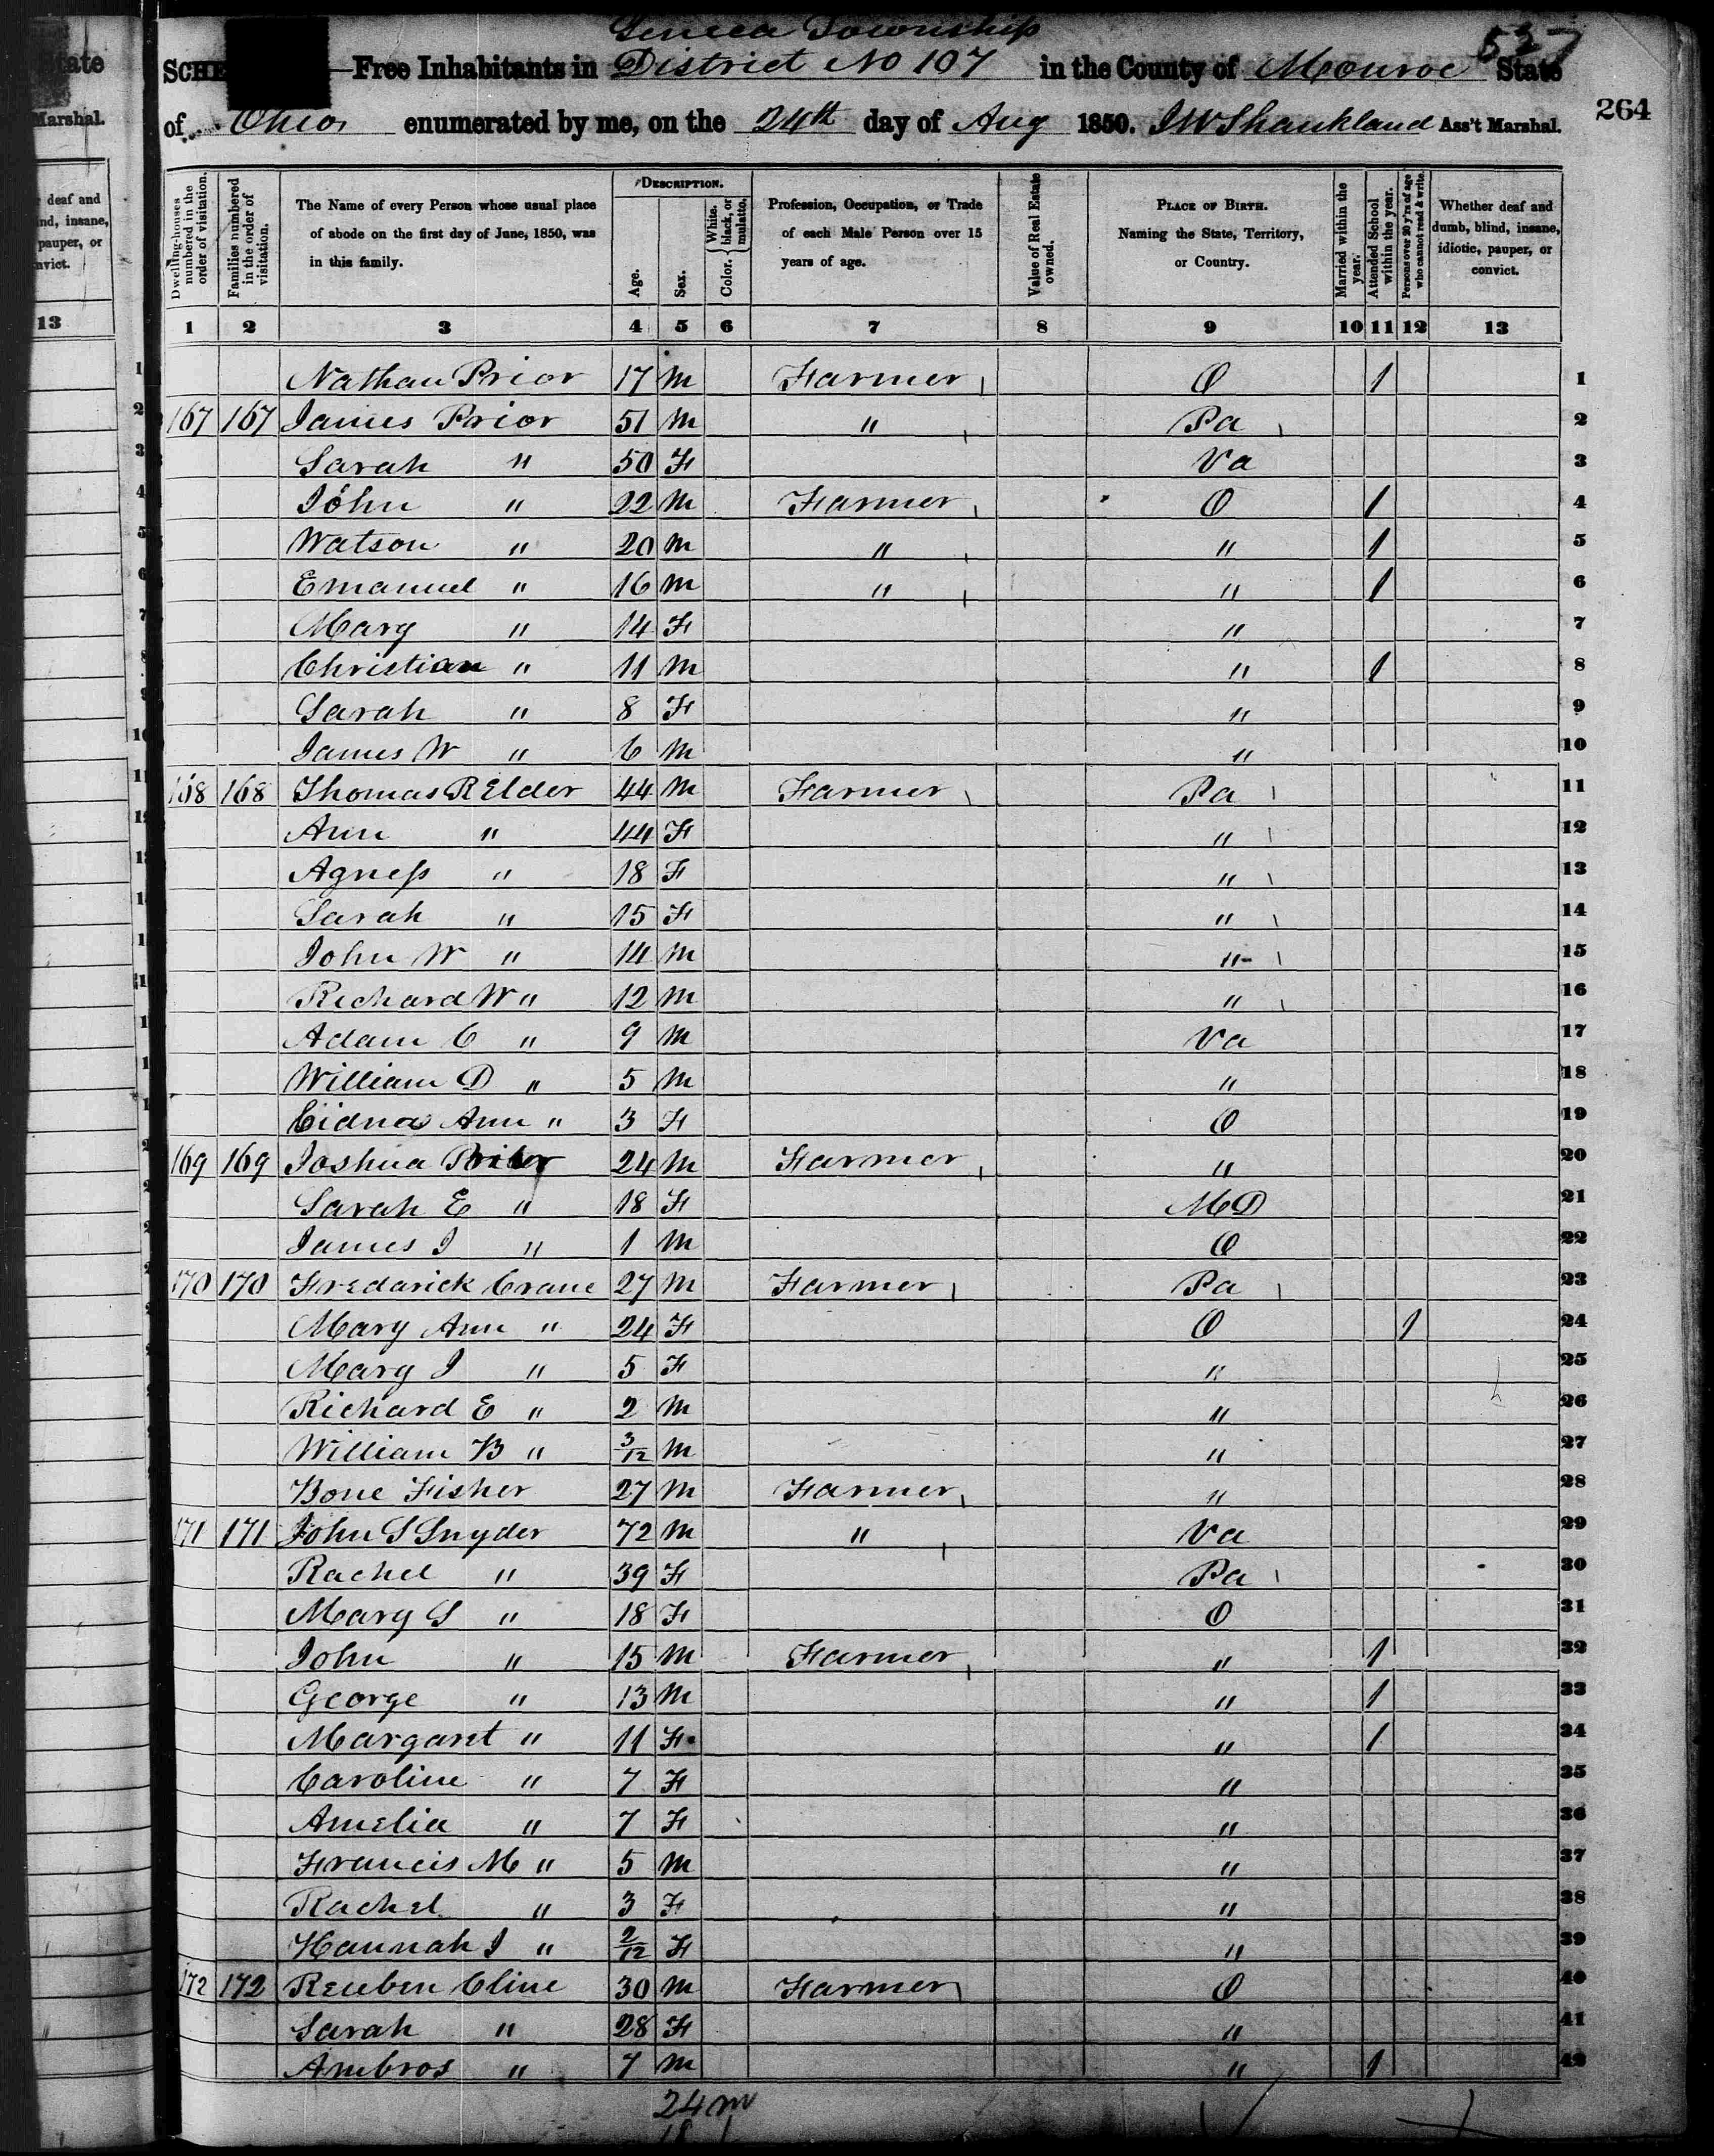 State
Marshal.
deaf and
ind, insane,
pauper, or
nvict.
13
Seneca Township
527
SCHE Free Inhabitants in District No 107 in the County of Monroe State
of Ohio enumerated by me, on the 24th day of Aug 1850. J W Shankland Ass't Marshal.
264
Dwelling-houses numbered in the order of visitation.
Families numbered in the order of visitation.
The Name of every Person whose usual place of abode on the first day of June, 1850, was in this family.
DESCRIPTION.
Age.
Sex.
Color. { White, black, or mulatto.
Profession, Occupation, or Trade of each Male Person over 15 years of age.
Value of Real Estate owned.
PLACE OF BIRTH. Naming the State, Territory, or Country.
Married within the year.
Attended School within the year.
Persons over 20 y'rs of age who cannot read & write.
Whether deaf and dumb, blind, insane, idiotic, pauper, or convict.
1 2 3 4 5 6 7 8 9 10 11 12 13
1 Nathan Prior 17 M Farmer O 1 1
2 167 167 James Prior 51 M " Pa 2
3 Sarah " 50 F Va 3
4 John " 22 M Farmer O 1 4
5 Watson " 20 M " " 1 5
6 Emanuel " 16 M " " 1 6
7 Mary " 14 F " 7
8 Christian " 11 M " 1 8
9 Sarah " 8 F " 9
10 James W " 6 M " 10
11 168 168 Thomas R Elder 44 M Farmer Pa 11
Ann " 44 F " 12
Agness " 18 F " 13
Sarah " 15 F " 14
John W " 14 M " 15
Richard W " 12 M " 16
Adam C " 9 M Va 17
William D " 5 M " 18
Cidna Ann " 3 F O 19
169 169 Joshua 24 M Farmer " 20
Sarah E " 18 F MD 21
James J " 1 M O 22
170 170 Fredarick Crane 27 M Farmer Pa 23
Mary Ann " 24 F O 1 24
Mary J " 5 F " 25
Richard E " 2 M " 26
William B " 3/12 M " 27
Bone Fisher 27 M Farmer " 28
171 171 John S Snyder 72 M " Va 29
Rachel " 39 F Pa 30
Mary S " 18 F O 31
John " 15 M Farmer " 1 32
George " 13 M " 1 33
Margaret " 11 F " 1 34
Caroline " 7 F " 35
Amelia " 7 F " 36
Francis M " 5 M " 37
Rachel " 3 F " 38
Hannah J " 2/12 F " 39
172 172 Reuben Cline 30 M Farmer O 40
Sarah " 28 F " 41
Ambros " 7 M " 1 42
24 m
18